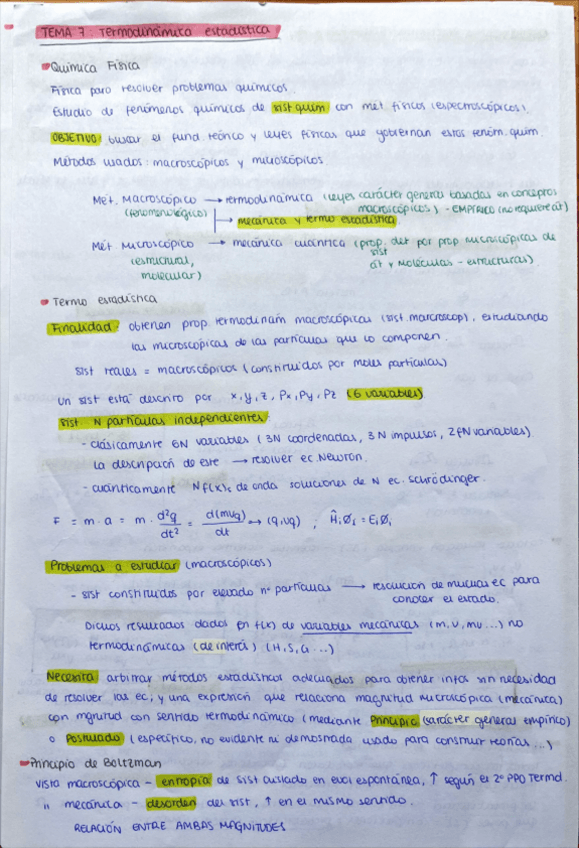 TEMA 7: Termodinámica estadística
Química Física
Física para resolver problemas químicos.
Estudio de fenómenos químicos de sist quím con met. físicos (espectroscópicos).
OBJETIVO: buscar el fund. teórico y leyes físicas que gobiernan estos fenóm. quím.
Métodos usados: macroscópicos y microscópicos
Mét. Macroscópico → termodinámica (leyes carácter general basadas en conceptos
(fenomenológico) macroscópicos) - EMPÍRICO (no requiere át)
→ mecánica y termo estadística
Mét Microscópico → mecánica cuántica (prop. det por prop microscópicas de
sist
(estructural, át y moléculas - estructuras)
molecular)
Termo estadística
Finalidad: obtener prop termodinám macroscópicas (sist macroscop), estudiando
las microscópicas de las partículas que lo componen.
Sist reales = macroscópicos (constituidos por moles partículas)
Un sist está descrito por x, y, z, Px, Py, Pz (6 variables)
Sist N partículas independientes:
- clásicamente 6N variables (3N coordenadas, 3N impulsos, 2fN variables)
La descripción de este → resolver ec. Newton.
- cuánticamente N f(x)s de onda soluciones de N ec. Schrödinger.
F = m · a = m · d²q/dt² = d(mvq)/dt ↔ (q, vq) ; Ĥᵢ Øᵢ = Eᵢ Øᵢ
Problemas a estudiar (macroscópicos)
- Sist constituidos por elevado nº partículas → resolución de muchas ec para
conocer el estado.
Dichos resultados dados en f(x) de variables mecánicas (m, v, mv ...) no
termodinámicas (de interés) (H, S, G ...)
Necesita arbitrar métodos estadísticos adecuados para obtener infos sin necesidad
de resolver las ec, y una expresión que relaciona magnitud microscópica (mecánica)
con mgnitud con sentido termodinámico (mediante Principio (carácter general empírico)
o Postulado (específico, no evidente ni demostrada usado para construir teorías ...)
Principio de Boltzman
Vista macroscópica - entropía de sist aislado en evol espontánea, ↑ según el 2º PPO Termd.
" mecánica - desorden del sist, ↑ en el mismo sentido.
RELACIÓN ENTRE AMBAS MAGNITUDES